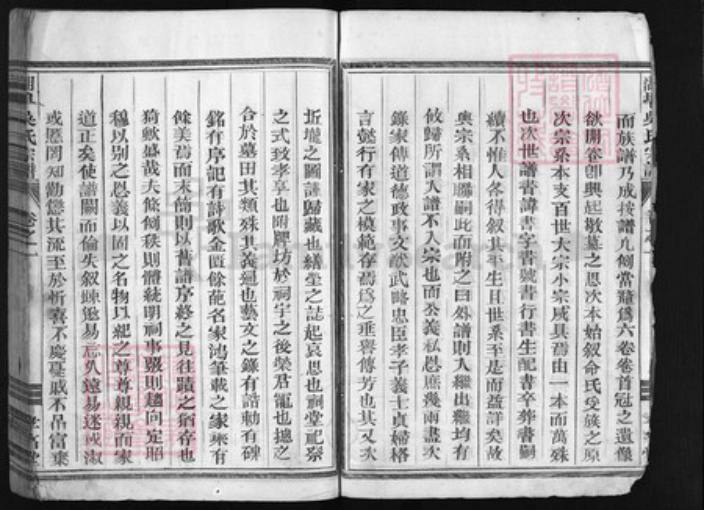 而族譜乃成按譜凡例當釐爲六卷卷首冠之遺像
欲開卷即興起敬墓之思次本始叙命氏受族之原
次宗系本支百世大宗小宗咸具焉由一本而萬殊
也次世譜書諱書字書號書行書生配書卒葬書嗣
續不惟人各得叙其平生且世系至是而益詳矣故
與宗系相聯嗣此而附之曰外譜則入繼出繼均有
攸歸所謂人譜不入宗也而公義私恩庶幾兩盡次
錄家傳道德政事文猷武略忠臣孝子義士貞婦格
言懿行有家之模範存焉爲之垂譽傳芳也其又次
坵壠之圖誌歸藏也繕塋之誌起哀思也祠堂祀祭
之式致孝享也附牌坊於祠宇之後榮君寵也據之
合於墓田其類殊其義通也藝文之錄有誥勅有碑
銘有序記有詩歌金匱餘葩名家鴻筆載之家乘有
餘美焉而末簡則以舊譜序終之見往蹟之猶存也
猗歟盛哉夫條例秩則體統明祠事嚴則趨向定昭
穆以别之恩義以固之名物以紀之尊尊親親而家
道正矣使譜闕而倫失叙疎邈易忘久遠易迷或淑
或慝罔知勸懲其流至於忻喜不慶憂戚不吊富棄
吳氏宗譜
卷之一